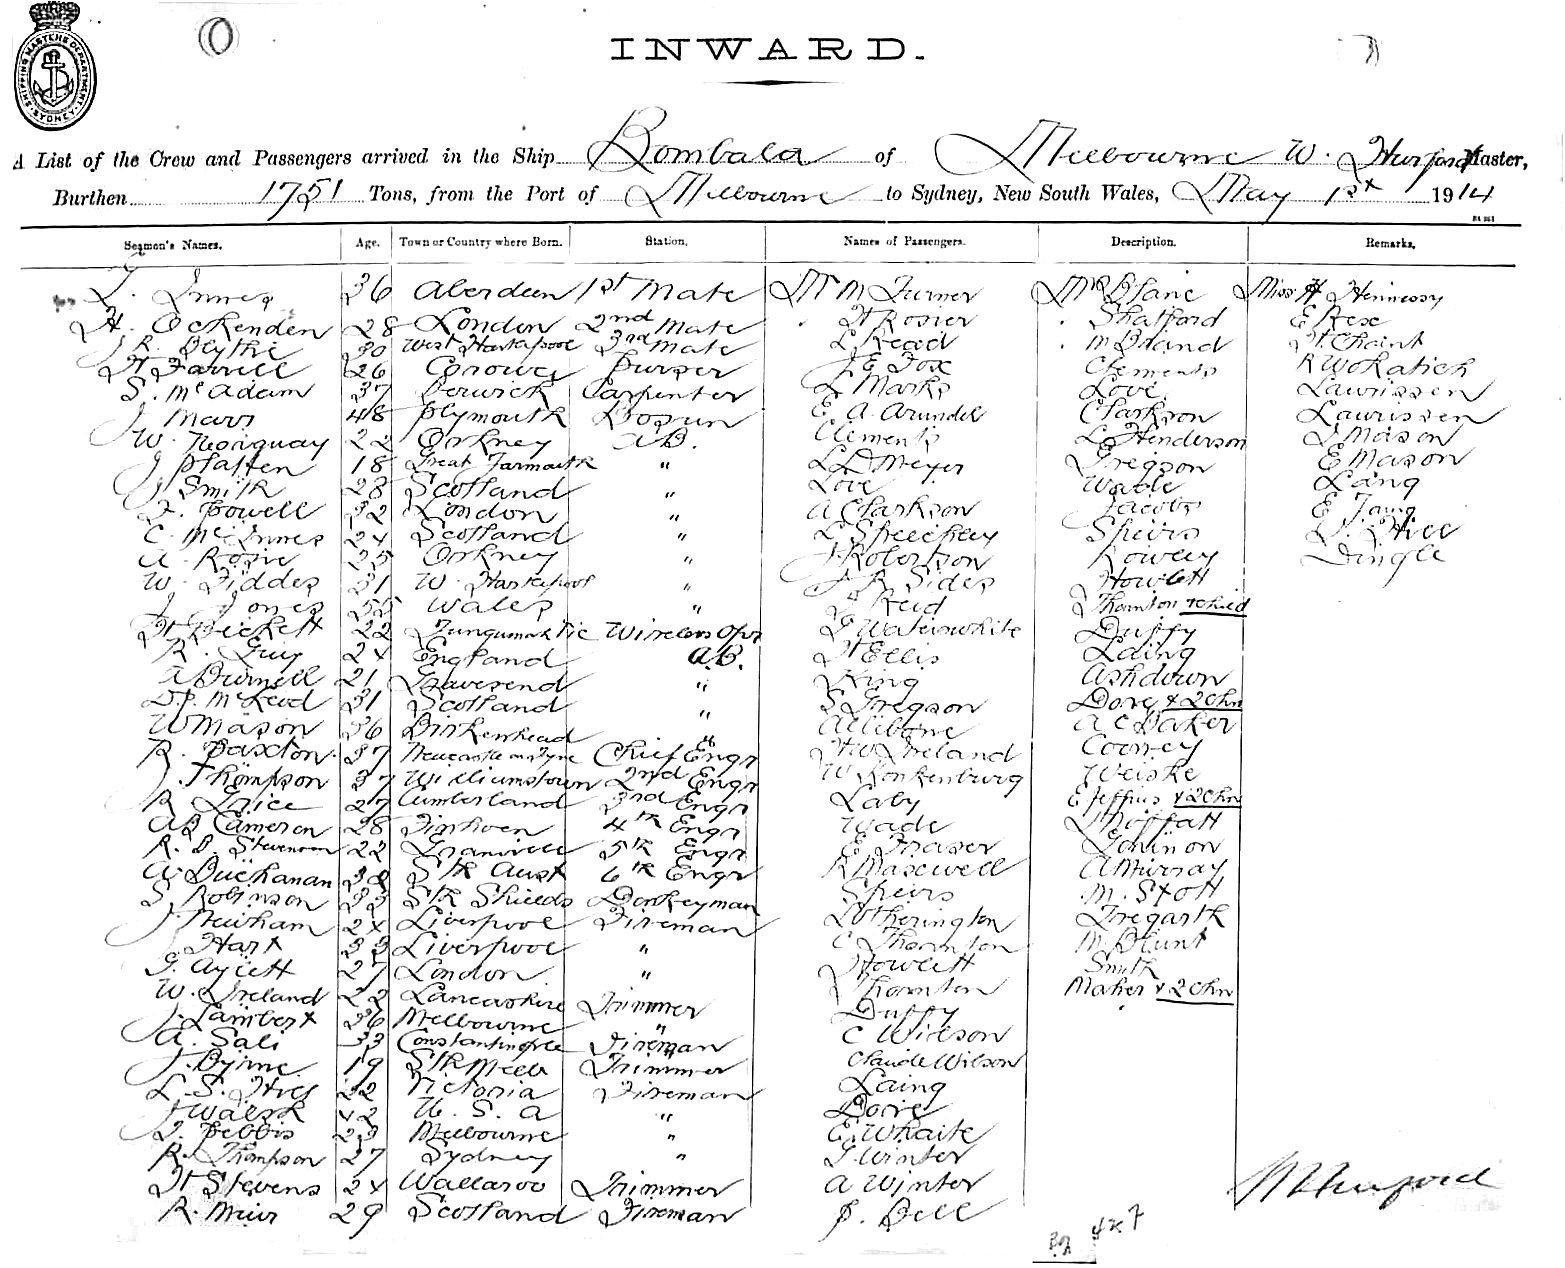 SHIPPING MASTERS DEPARTMENT SYDNEY
INWARD.
A List of the Crew and Passengers arrived in the Ship Bombala of Melbourne W. Hurford Master,
Burthen 1751 Tons, from the Port of Melbourne to Sydney, New South Wales, May 1st 1914
Seamen's Names. Age. Town or Country where Born. Station. Names of Passengers. Description. Remarks.
Innes 36 Aberdeen 1st Mate Mr M Turner Mr Miss H Hennessy
H. Ockenden 28 London 2nd Mate H Rosier Shatford E Rex
J R. Blythe 30 West Hartlepool 3rd Mate L Read M Bland
H Farrell 26 Corowa Purser J E Fox Clements
S. McAdam 37 Berwick Carpenter L Marks Love Laurissen
J Marr 48 Plymouth Bosun E A Arundel Clarkson Laurissen
W. 22 Orkney A B. Clements L Henderson J Mason
J Platten 18 Great Yarmouth " L D Meyer Gregson E Mason
J Smith 28 Scotland " Love Wade Lang
F. Powell 32 London " A Clarkson Jacobs
C. McInnes 24 Scotland " L Speechley Speirs Hill
A. Rosie 25 Orkney " J Robertson Rowley Dingle
W. Fiddes 31 W. Hartlepool J R Sides Howlett
J Jones 55 Wales " Reid Thornton & child
H Beckett 22 Wireless Opr Waterwhite Duffy
R. Guy 24 England A.B. H Ellis Laing
A Burnell 21 Gravesend " King Ashdown
D. J. McLeod 31 Scotland " S Gregson Dove & 2 Chn
W Mason 36 Birkenhead " A C Baker
R. Paxton 37 Newcastle on Tyne Chief Engr H W Ireland Cooney
J. Thompson 37 Williamstown 2nd Engr W. Weiske
R Price 27 Cumberland 3rd Engr Laby E Jeffries & 2 Chn
A B Cameron 28 4th Engr Wade Moffatt
R. D. Stevenson 22 Granville 5th Engr E Fraser
A. Buchanan 38 Sth Aust 6th Engr R Maxwell A Murray
S Robinson 33 Sth Shields Donkeyman Speirs M. Stott
J 24 Liverpool Fireman Lotherington Tregarth
J Hart 33 Liverpool " C Thornton M Blunt
G. Aylett 27 London " Howlett Smith
W. Ireland 22 Lancashire Trimmer Thornton Maher & 2 Chn
J. Lambert 36 Melbourne " Duffy
A. Sali 33 Constantinople Fireman C Widson
J. Byrne 19 Sth Melb Trimmer Claude Wilson
L. S. 22 Victoria Fireman Laing
J Walsh 42 U. S. A " Dove
23 Melbourne " E Whaite
R. Thompson 27 Sydney " G Winter
H Stevens 24 Wallaroo Trimmer A Winter
R. Muir 29 Scotland Fireman J. Bell
W Hurford